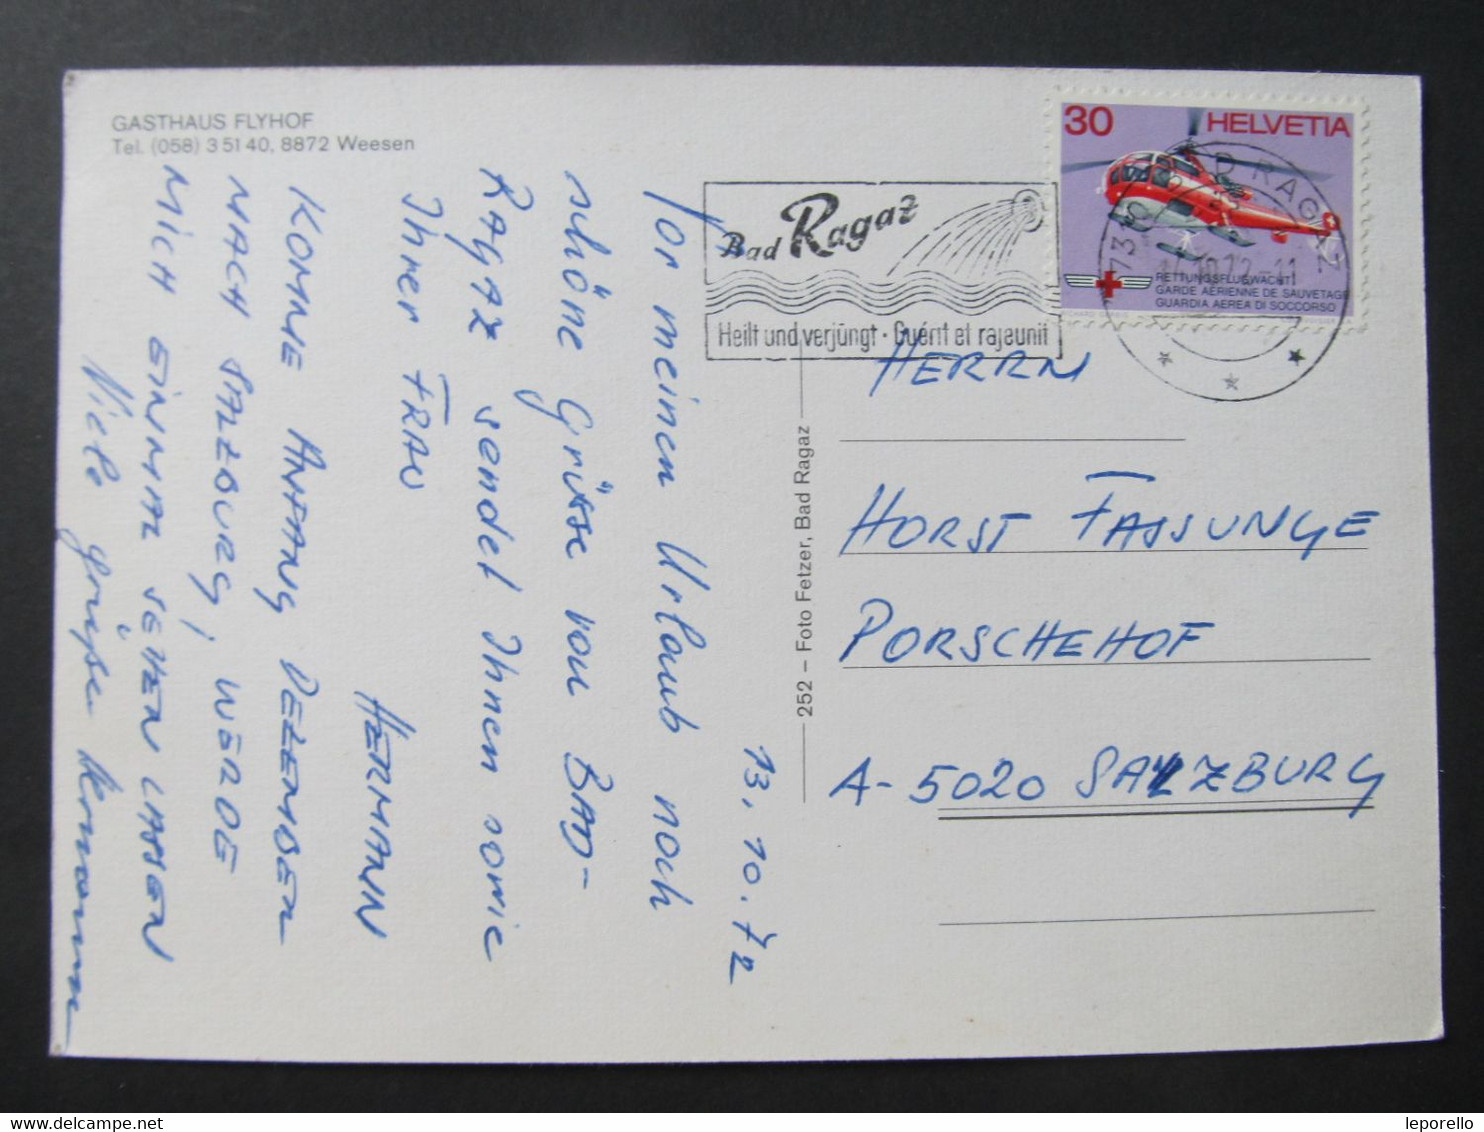 GASTHAUS FLYHOF
Tel. (058) 3 51 40, 8872 Weesen
13. 10. 72
Vor meinen Urlaub noch
schöne Grüsse von BAD-
RAGAZ sendet Ihnen sowie
Ihrer FRAU
HERMANN
KOMME ANFANG DEZEMBER
NACH SALZBURG, WERDE
MICH EINMAL SEHEN LASSEN
Viele Grüße
252 – Foto Fetzer, Bad Ragaz
Bad Ragaz
Heilt und verjüngt · Guérit et rajeunit
30 HELVETIA
RETTUNGSFLUGWACHT
GARDE AÉRIENNE DE SAUVETAGE
GUARDIA AEREA DI SOCCORSO
BAD RAGAZ
HERRN
HORST FASSUNGE
PORSCHEHOF
A-5020 SALZBURG
leporello